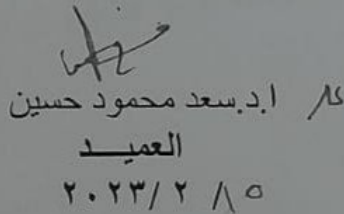 ا.د.سعد محمود حسين
العميد
٢٠٢٣/ ٢ /١٥